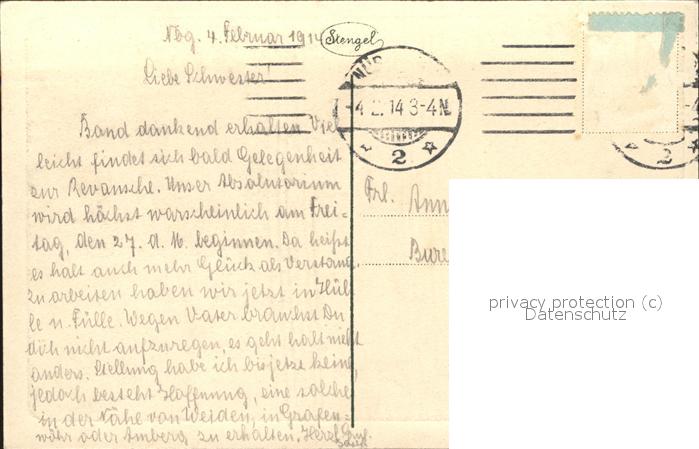 Nbg. 4. Februar 1914
Stengel
Liebe Schwester!
NÜR
-4.2.14 3-4N
2
2
Band dankend erhalten. Viel
leicht findet sich bald Gelegenheit
zur Revansche. Unser Absolutorium
wird höchst warscheinlich am Frei-
tag, den 27. d. M. beginnen. Da heißt
es halt auch mehr Glück als Verstand,
zu arbeiten haben wir jetzt in Hül
le u. Fülle. Wegen Vater brauchst Du
dich nicht aufzuregen, es geht halt nicht
anders. Stellung habe ich bis jetzt keine,
jedoch besteht Hoffnung, eine solche
in der Nähe von Weiden, in Grafen-
wöhr oder Amberg zu erhalten. Herzl. Gruß
Frl. Ann
Bure
privacy protection (c)
Datenschutz